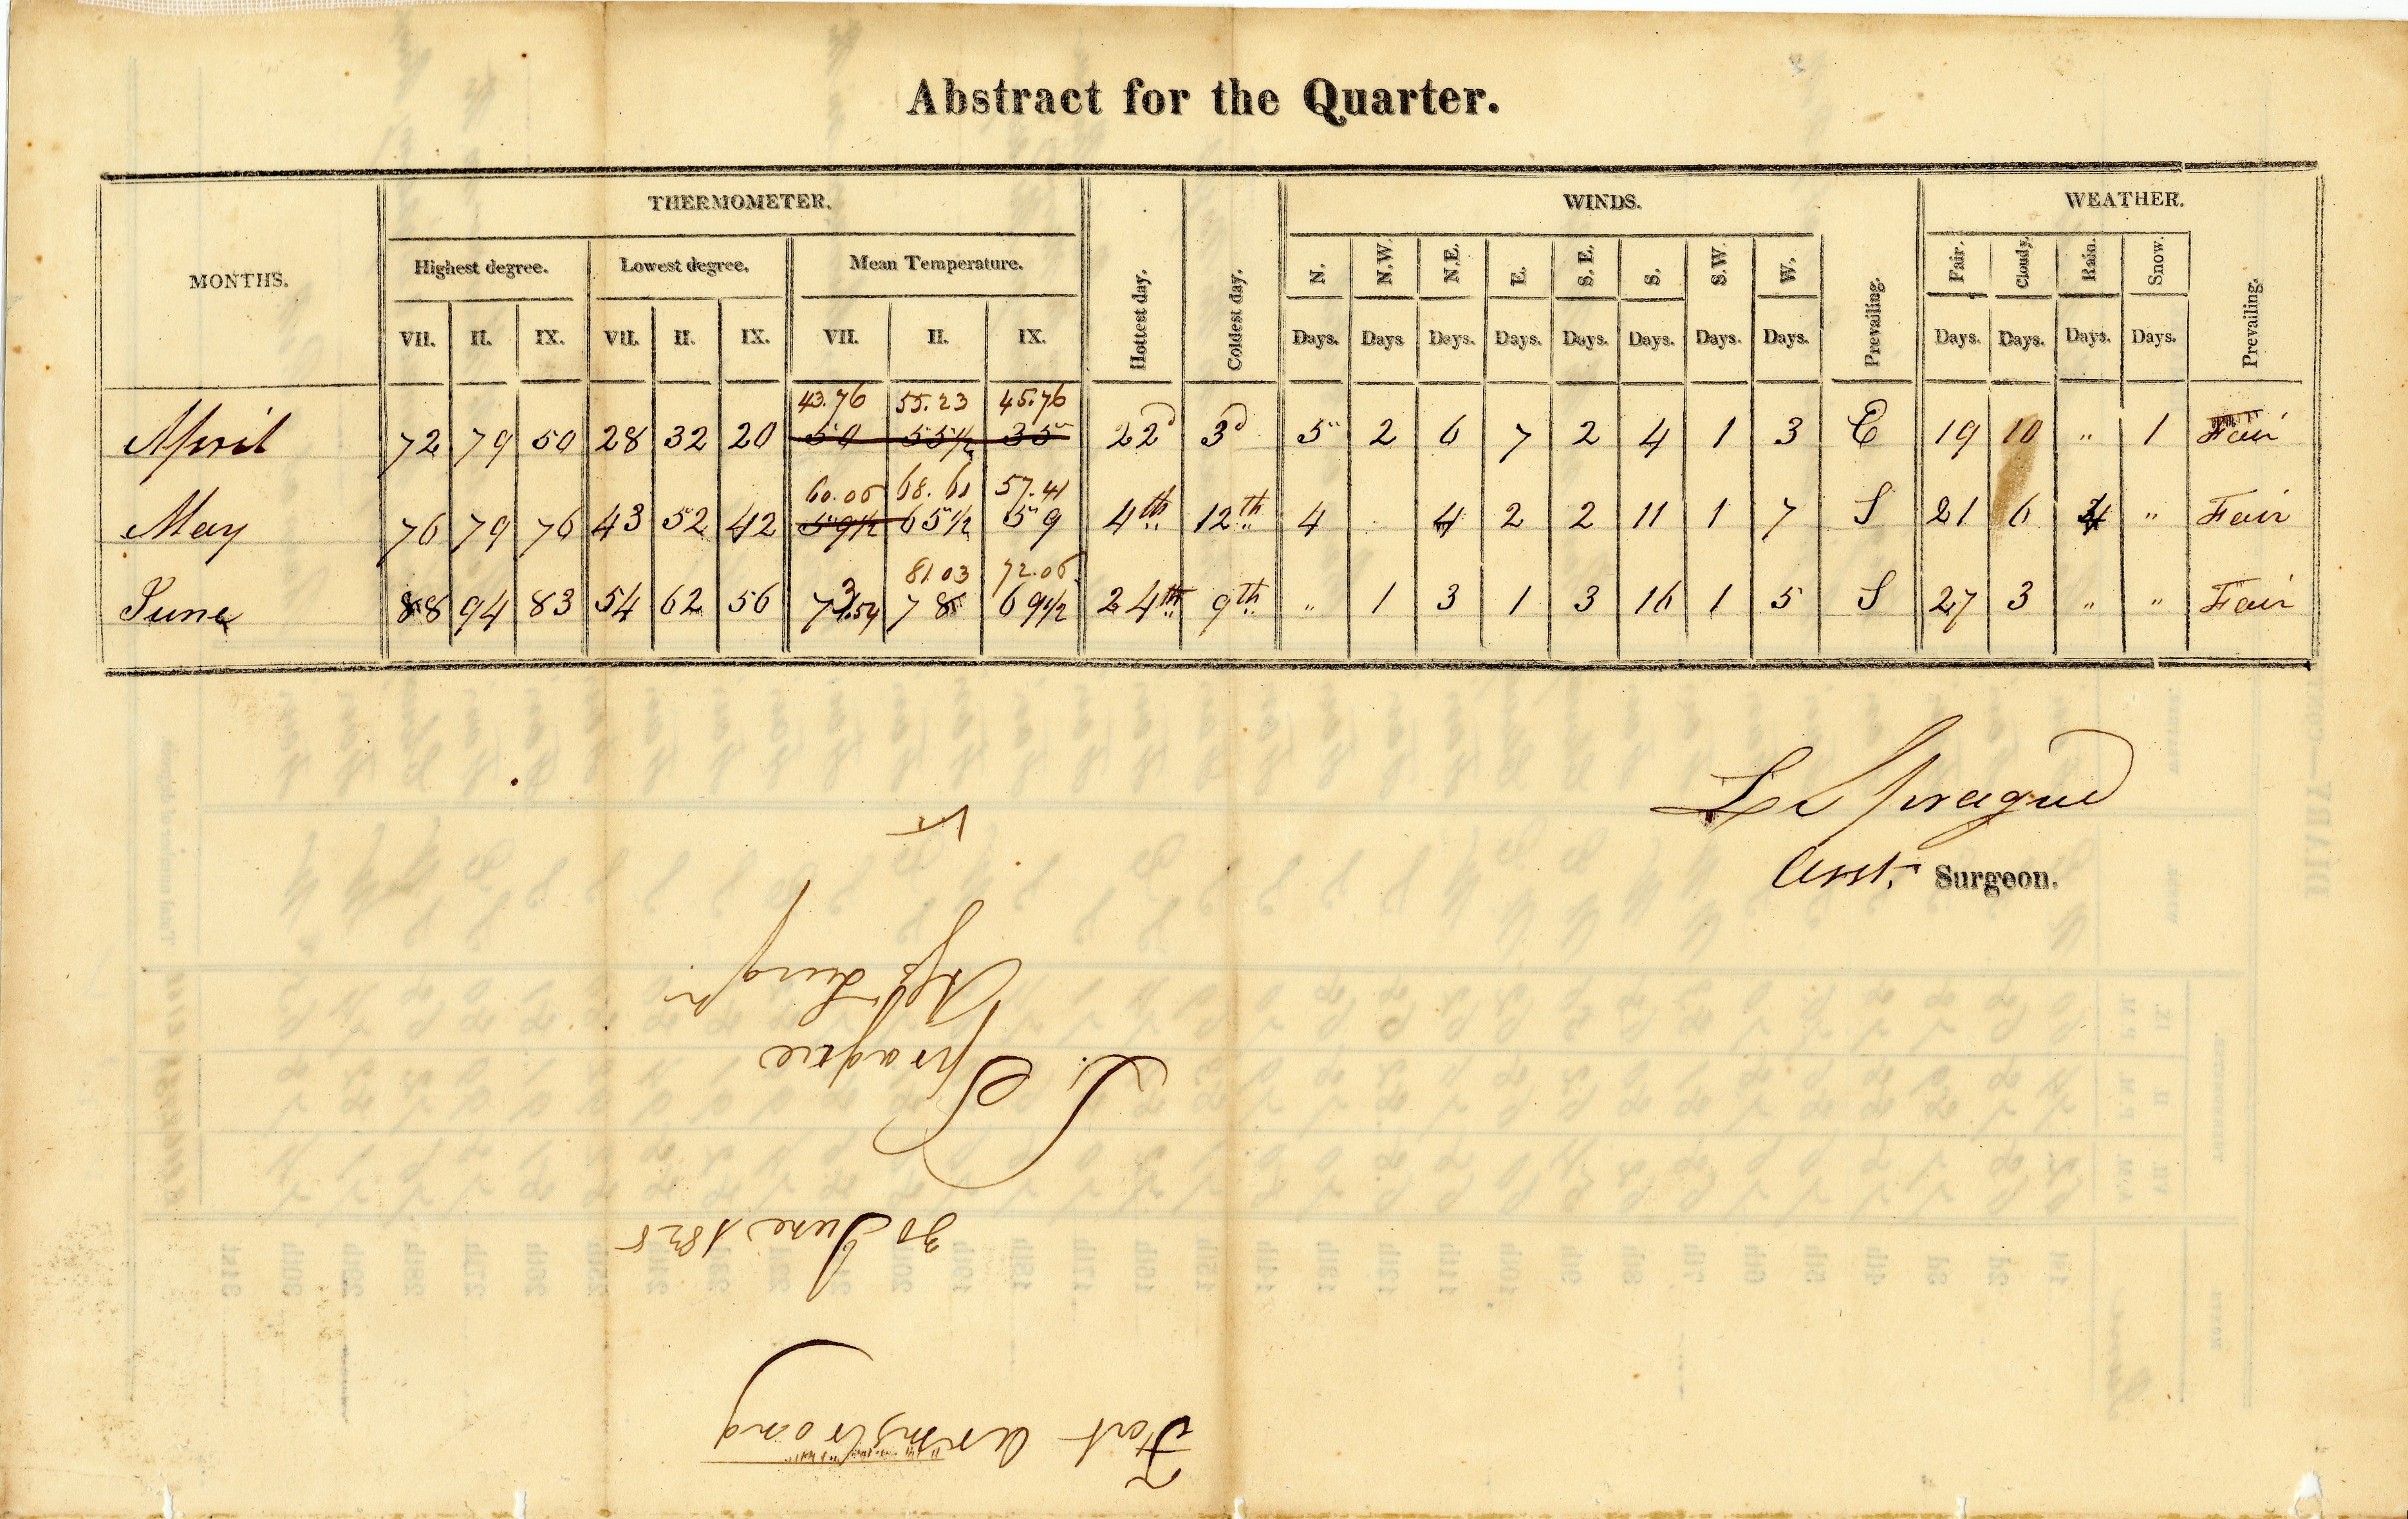 Abstract for the Quarter.
MONTHS. THERMOMETER. Hottest day. Coldest day. WINDS. WEATHER.
Highest degree. Lowest degree. Mean Temperature. N. N.W. N.E. E. S. E. S. S.W. W. Prevailing. Fair. Cloudy. Rain. Snow. Prevailing.
VII. II. IX. VII. II. IX. VII. II. IX. Days. Days Days. Days. Days. Days. Days. Days. Days. Days. Days. Days.
43.76 55.23 45.76
April 72 79 50 28 32 20 50 55 1/2 35 22d 3d 5 2 6 7 2 4 1 3 E 19 10 " 1 Fair
60.06 68.61 57.41
May 76 79 76 43 52 42 59 1/2 65 1/2 59 4th 12th 4 4 2 2 11 1 7 S 21 6 4 " Fair
81.03 72.06
June 88 94 83 54 62 56 73.54 78 69 1/2 24th 9th " 1 3 1 3 16 1 5 S 27 3 " " Fair
L Sprague
Asst. Surgeon.
Fort Armstrong
30 June 1828
L. Sprague